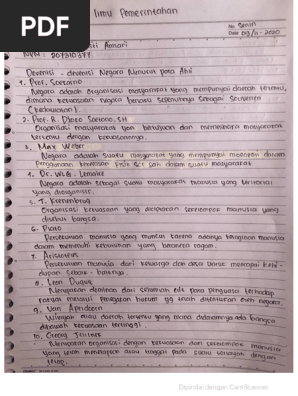 PDF
Ilmu Pemerintahan
No: Senin
Date 09/11 - 2020
Siti Asnari
NPM : 207310377
Devenisi - devenisi Negara Menurut para Ahli
1. Prof. Soenarno
Negara adalah Organisasi masyarakat yang mempunyai daerah tertentu,
dimana kekuasaan negara berlaku sepenuhnya sebagai Souverien
(kedaulatan).
2. Prof. R. Djoko Soetono. SH
Organisasi masyarakat yang bertujuan dan memelihara masyarakat
tersebut dengan kekuasaannya.
3. Max Weber
Negara adalah suatu masyarakat yang mempunyai monopoli dalam
Penggunaan kekerasan Fisik secara sah dalam suatu masyarakat
4. Dr. W.L.G. Lemaire
Negara adalah sebagai suatu masyarakat manusia yang teritorial
yang diorganisir.
5. J. Kranenburg
Organisasi kekuasaan yang diciptakan sekelompok manusia yang
disebut bangsa.
6. Plato
Persekutuan manusia yang muncul karena adanya keinginan manusia
dalam memenuhi kebutuhan yang beraneka ragam.
7. Aristoteles
Persekutuan manusia dari keluarga dan desa untuk mencapai kehi-
dupan sebaik - baiknya.
8. Leon Duguit
9. Van Apeldoorn
Wilayah atau daerah tertentu yang mana didalamnya ada bangsa
dibawah kekuasaan tertinggi.
10. Georg Jellinek
Merupakan organisasi dengan kekuasaan dari sekelompok manusia
yang telah menempati atau tinggal pada suatu wilayah dengan
tetap.
Dipindai dengan CamScanner